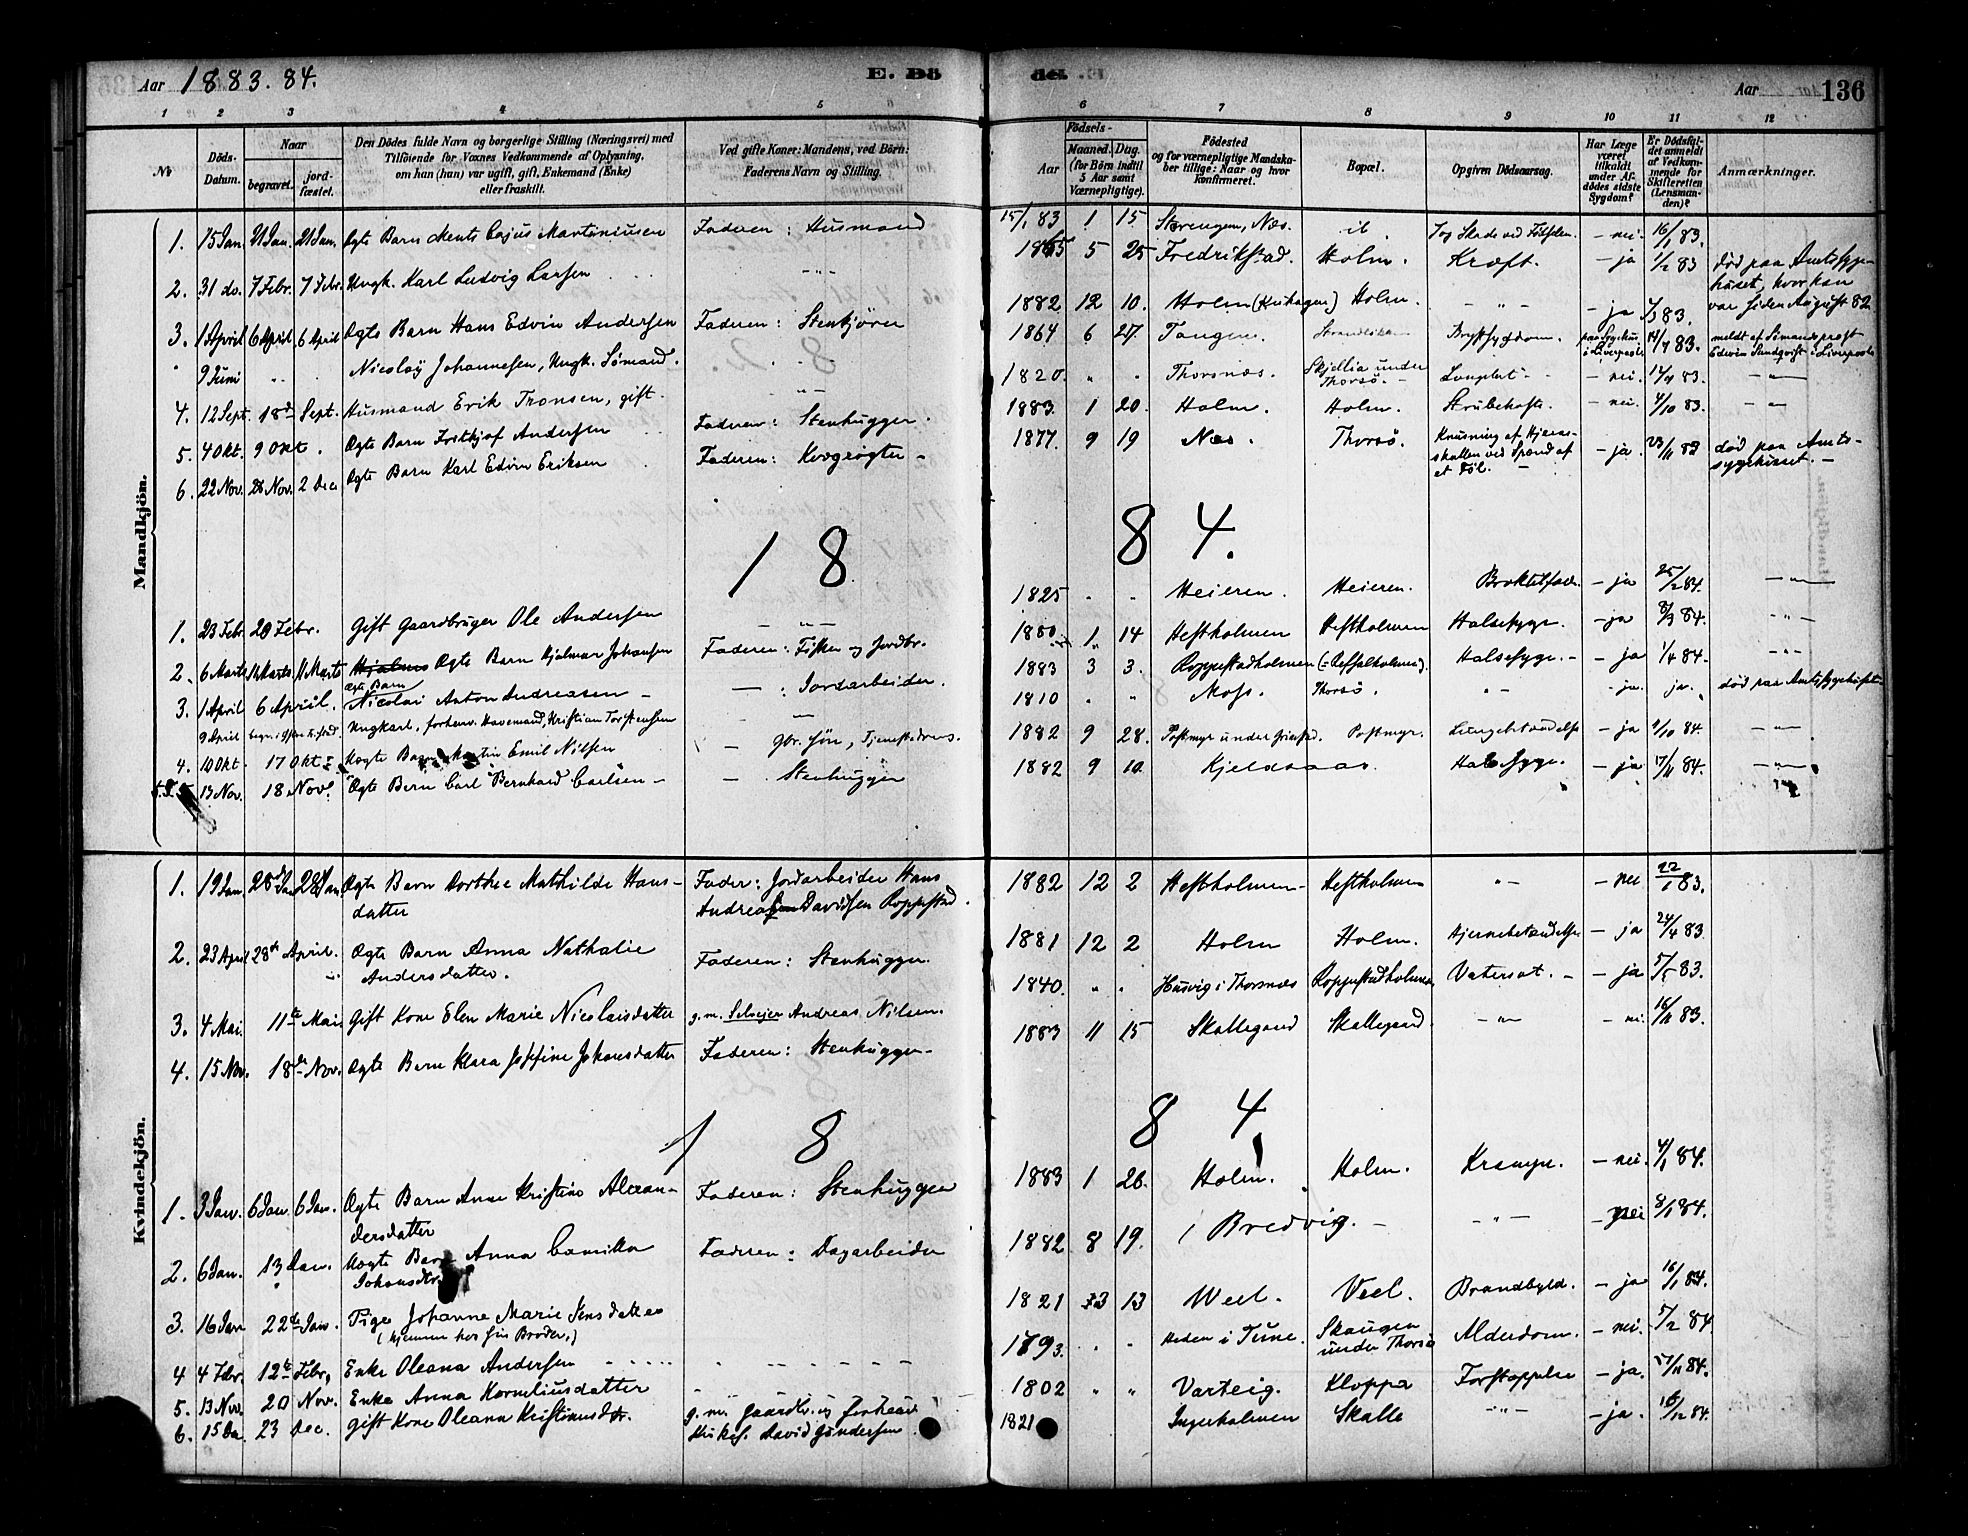 Aar 1883. 84.
E. Dö
de. E.
Aar
136
1 2 3 4 5 6 7 8 9 10 11 12
No
Döds-Datum.
Naar
begravet.
jord-fæstet.
Den Dödes fulde Navn og borgerlige Stilling (Næringsvei) med
Tilföiende for Voxnes Vedkommende af Oplysning,
om han (hun) var ugift, gift, Enkemand (Enke)
eller fraskilt.
Ved gifte Koner: Mandens, ved Börn:
Faderens Navn og Stilling.
Födsels-
Aar
Maaned. Dag.
(for Börn indtil
5 Aar samt
Værnepligtige).
Födested
og for værnepligtige Mandska-
ber tillige: Naar og hvor
konfirmeret.
Bopæl.
Opgiven Dödsaarsag.
Har Læge
været
tilkaldt
under Af-
dödes sidste
Sygdom?
Er Dödsfal-
det anmeldt
af Vedkom-
mende for
Skifteretten
(Lensman-
den)?
Anmærkninger.
Mandkjön.
1. 15 Jan. 21 Jan. 21 Jan. Ægte Barn Martiniusen Faderen: Husmand 15/1 83 1 15 Næs. ib. Tog Skade ved Fødselen. – nei. 16/1 83.
2. 31 do. 7 Febr. 7 Febr. Ungk. Karl Ludvig Larsen 1865 5 25 Fredrikstad. Holm. Kræft. – ja 1/2 83 død paa Amtssyge-
huset, hvor han
var siden August 82
3. 1 April 6 April 6 April Ægte Barn Hans Edvin Andersen Faderen: Stenkjører 1882 12 10. Holm Holm. – " – – ja
" 9 Juni " Nicolay Johannesen, Ungk. Sømand. 1864 6 27. Tangen. Brystsygdom. paa Sygehus
i Liverpool 14/7 83. meldt af Sømandsprest
Edvin Lundqvist i Liverpool
4. 12 Sept. 18de Sept. Husmand Erik Tronsen, gift. 1820. " " Thorsnæs. Skjellia under
Thorsø. – nei. 83. – " –
5. 4 Okt. 9 Okt. Ægte Barn Frithjof Andersen Faderen: Stenhugger. 1883. 1 20. Holm. Holm. Strubehoste. – nei. 4/10 83. – " –
6. 22 Nov. 28 Nov. 2 Dec Ægte Barn Karl Edvin Eriksen Faderen: Kvægrøgter – 1877 9 19 Næs. Thorsø. Knusning af Hjerne-
skallen ved Spænd af
et Føl. – – ja. 23/11 83 død paa Amts-
sygehuset. –
1 8 8 4.
1. 23 Febr. Febr. Gift Gaardbruger Ole Andersen – " – 1825 " " Heieren. Heieren. – ja 25/2 84. – " –
2. 6 Marts Marts 11 Marts Ægte Barn Hjalmar Johansen Faderen: Fisker og Jordbr. 1880. 1. 14 Hestholmen Hestholmen Halssyge. – ja 8/3 84. – " –
3. 1 April 6 April. Ægte Barn
Nicolai Anton Andreasen – – : Jordarbeider. 1883 3 3. Roppestadholmen Halssyge. – – ja 1/4 84. – " –
9 April Ungkarl, forhenv. Kristian Torstensen 1810 " " Moss. Thorsø. " – – ja. ja. død paa Amtssygehuset –
4. 10 Okt. 17 Okt. Uægte Barn Emil Nilsen – Gbr. Søn, 1882 9 28. Postmyr. Lungebetændelse – ja 84. – " –
5. 13 Nov. 18 Nov. Ægte Barn Carl Bernhard Carlsen – – Stenhugger 1882 9 10. Halssyge. – ja 17/11 84. – " –
Kvindekjön.
1. 19 Jan. 28 Jan 28 Jan. Ægte Barn Dorthea Mathilde Hans-
datter Fader: Jordarbeider Hans
Andreas Davidsen Roppestad. 1882 12 2 Hestholmen – Hestholmen " – – nei 22/1 83.
2. 23 April 28de April. Ægte Barn Anna Nathalie
Andersdatter. Faderen: Stenhugger. 1881 12 2 Holm Holm. Hjernebetændelse – ja 24/4 83.
3. 4 Mai. 11te Mai. Gift Kone Elen Marie Nicolaisdatter g. m. Selveier Andreas Nilsen. 1840. " " Husvig i Thorsnæs Roppestadholmen. Vatersot. – – ja 5/5 83.
4. 15 Nov. 18de Nov. Ægte Barn Klara Josefine Johansdatter Faderen: Stenhugger – 1883 11 15 Skallegaard Skallegaard. – " – – nei. 16/11 83.
1 8 8 4
1. 3 Jan. 6 Jan. 6 Jan. Ægte Barn Anne Kristine Alexan-
dersdatter Faderen: Stenhugger 1883 1 26. Holm. Holm. Krampe. – nei. 4/1 84.
2. 6 Jan. 13 Jan. Uægte Barn Anna Camilla
Johansdtr. Faderen: Dagarbeider 1882 8 19. Bredvig. – – " – – nei 8/1 84.
3. 16 Jan 22de Jan. Pige Johanne Marie Jensdatter
(hjemme hos sin Broder.) 1821 3 13 Weel. Veel. Brandbyld. – ja 16/1 84.
4 4 Febr. 12te Febr, Enke Oleana Andersen 1793. " " Heden i Tune. Skaugen
under Thorsø Alderdom. – nei. 5/2 84.
5. 13 Nov. 20 Nov. Enke Anna Korneliusdatter 1802 " " Varteig. Kloppa Forstoppelse – ja. 84.
6. 15 De. 23 Dec. Gift Kone Oleana Kristiansdtr. g. m. Gaardbr. og forhenv.
David Gundersen. 1821 Ingerholmen Skalle " – – ja. 16/12 84.